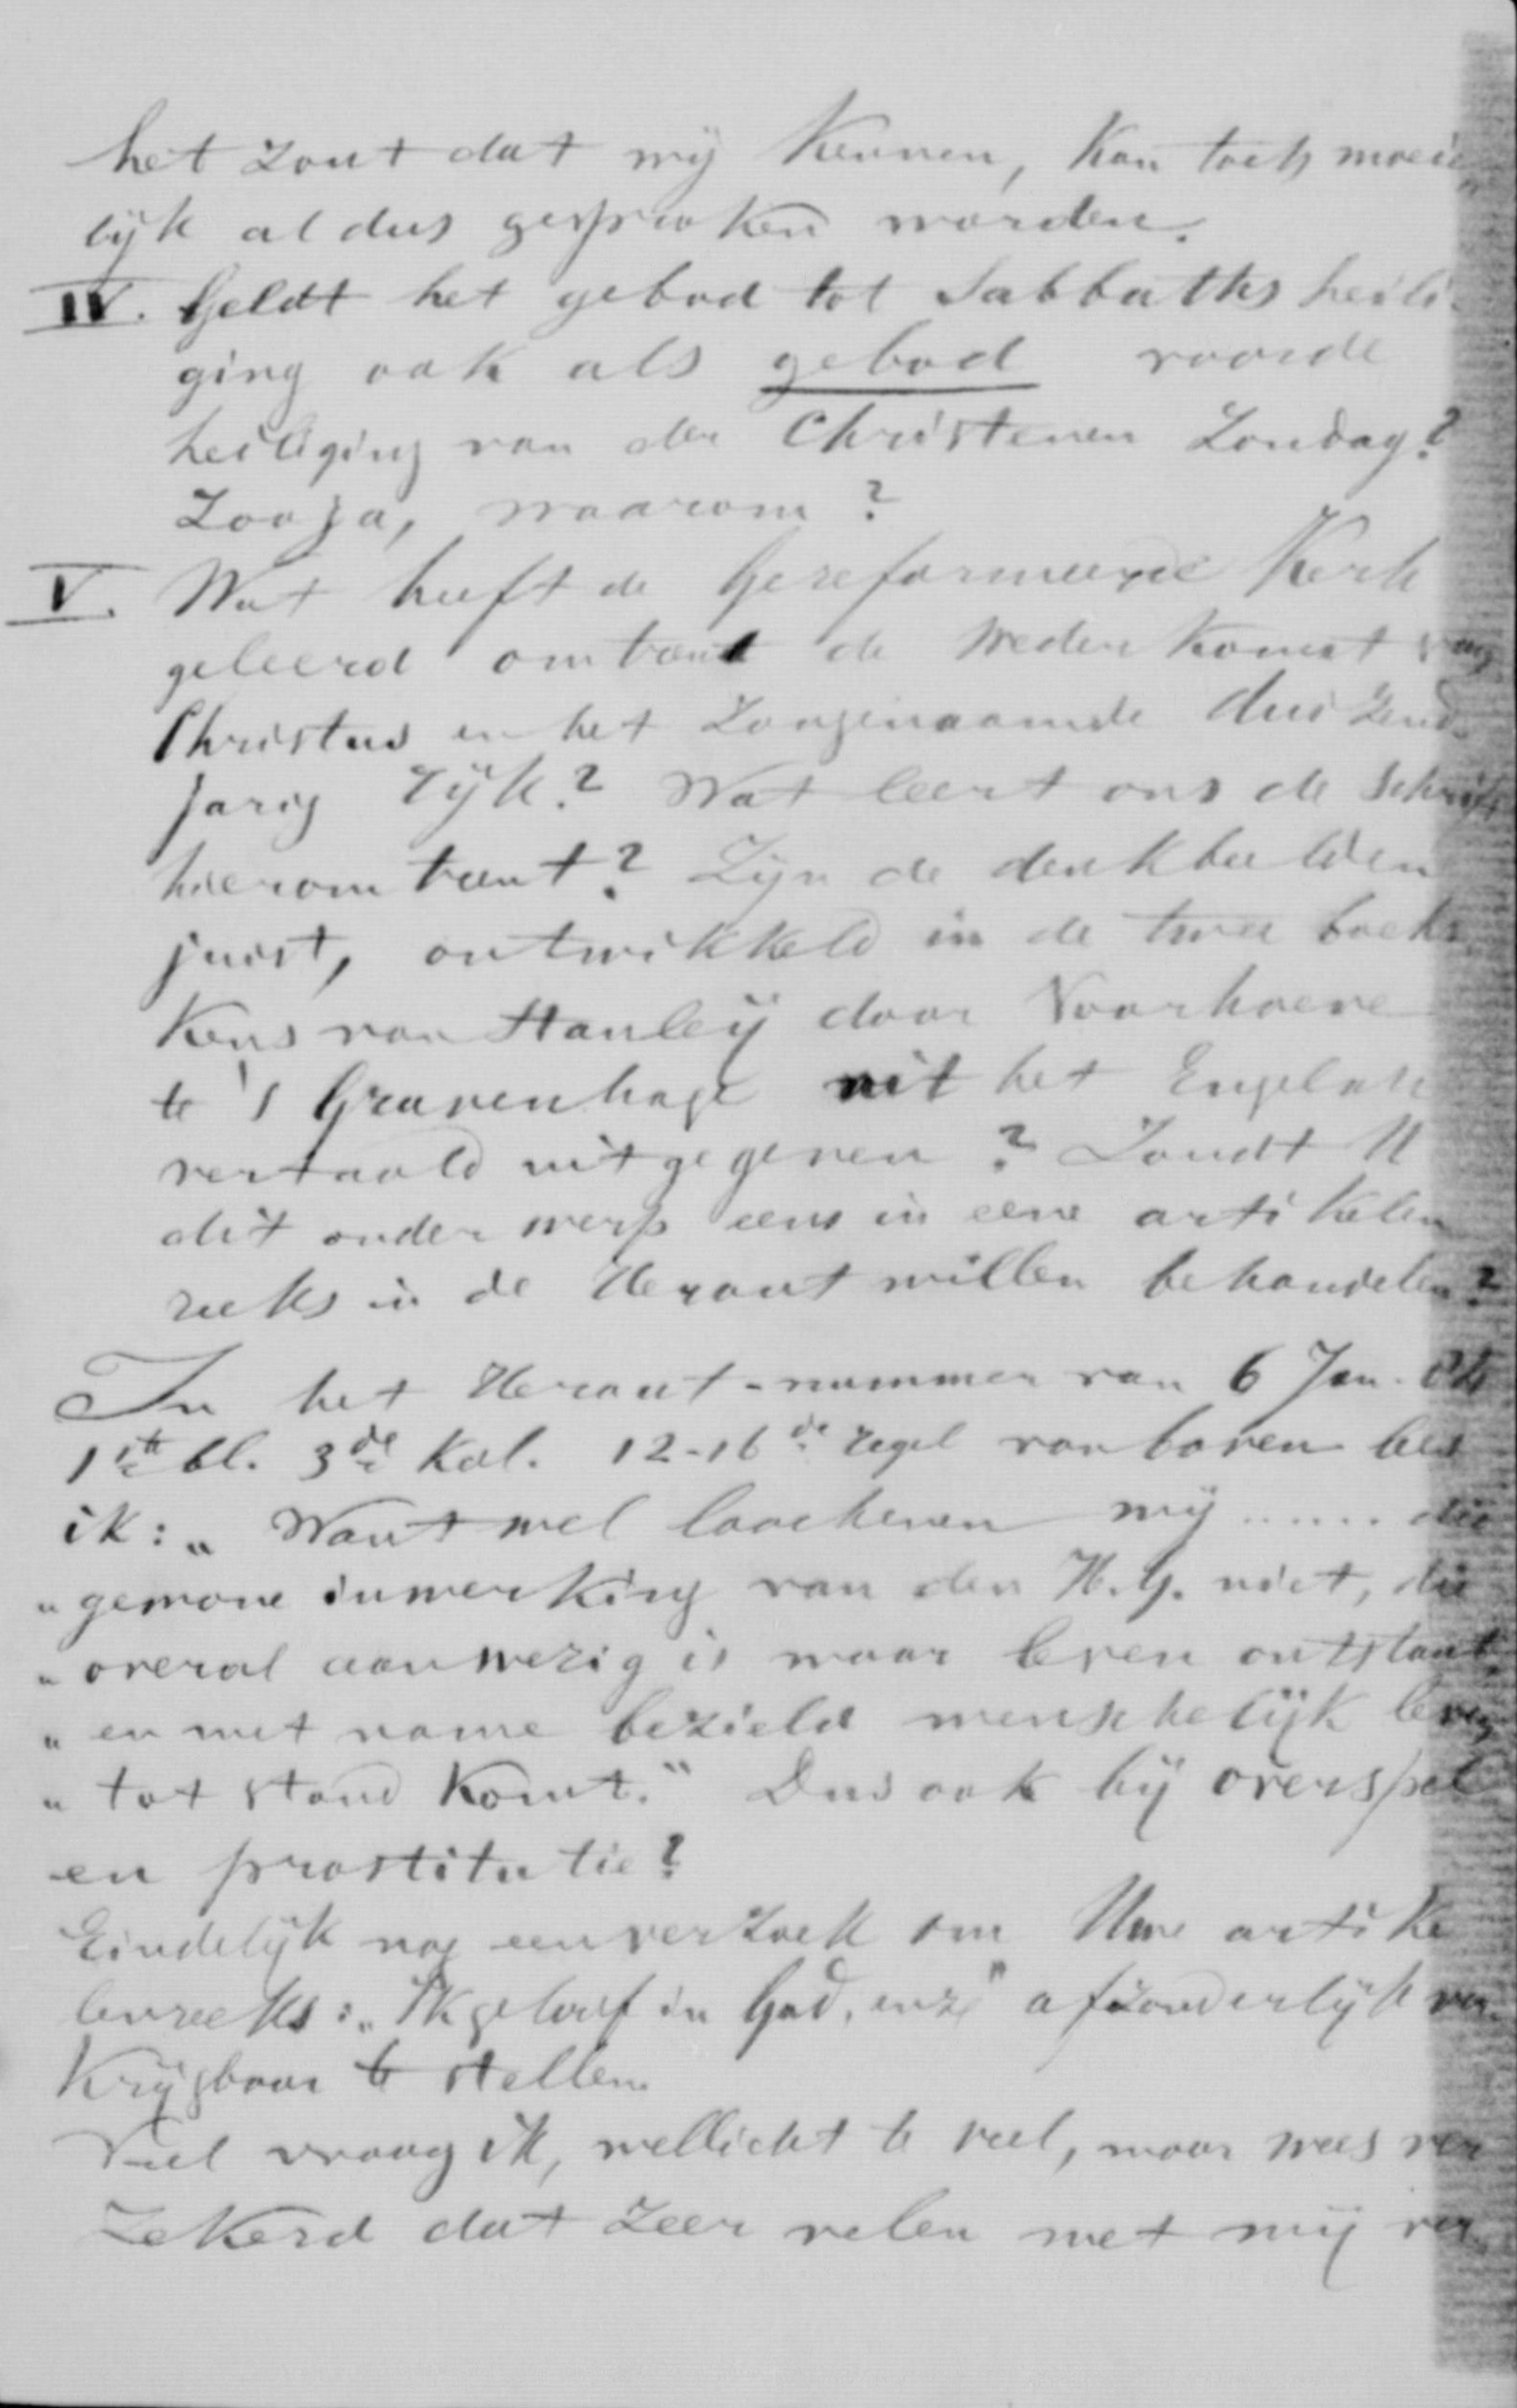 het zout dat wij kennen, kan toch moeie„
lijk aldus gesproken worden.
IV. Geldt het gebod tot Sabbaths heili-
ging ook als gebod voor de
heiliging van den Christenen Zondag?
Zoo ja, waarom?
V. Wat heeft de Gereformeerde Kerk
geleerd omtrent de wederkomst van
Christus en het zoogenaamde duizend„
jarig rijk? Wat leert ons de Schrift
hieromtrent? Zijn de denkbeelden
juist, ontwikkeld in de twee boeks„
kens van Stanley door Voorhoeve
te 's Gravenhage uit het Engelsch
vertaald uitgegeven? Zoudt U
dit onderwerp eens in eene artikelen
reeks in de Heraut willen behandelen?
In het Heraut-nummer van 6 Jan.
1ste bl. 3de kol. 12-16de regel van boven lees
ik: „Want wel loochenen wij...... die
„gewone inwerking van den H.G. niet, die
„overal aanwezig is waar leven ontstaat,
„en met name bezield menschelijk leven
„tot stand komt." Dus ook bij overspel
en prostitutie?
Eindelijk nog een verzoek om Uwe artike
lenreeks: „Ik geloof in God, enz" afzonderlijk ver-
krijgbaar te stellen.
Veel vraag ik, wellicht te veel, maar wees ver
zekerd dat zeer velen met mij ver„